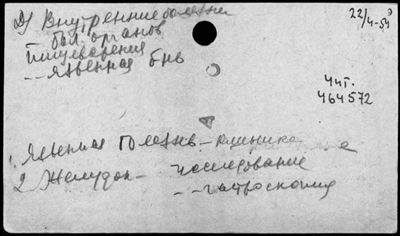 Д) Внутренние болезни
бол. органов
пищеварения
-- язвенная бнь
22/4-54
Чит.
464572
1. Язвенная болезнь - клиника
2 Желудок - исследование
- - гастроскопия